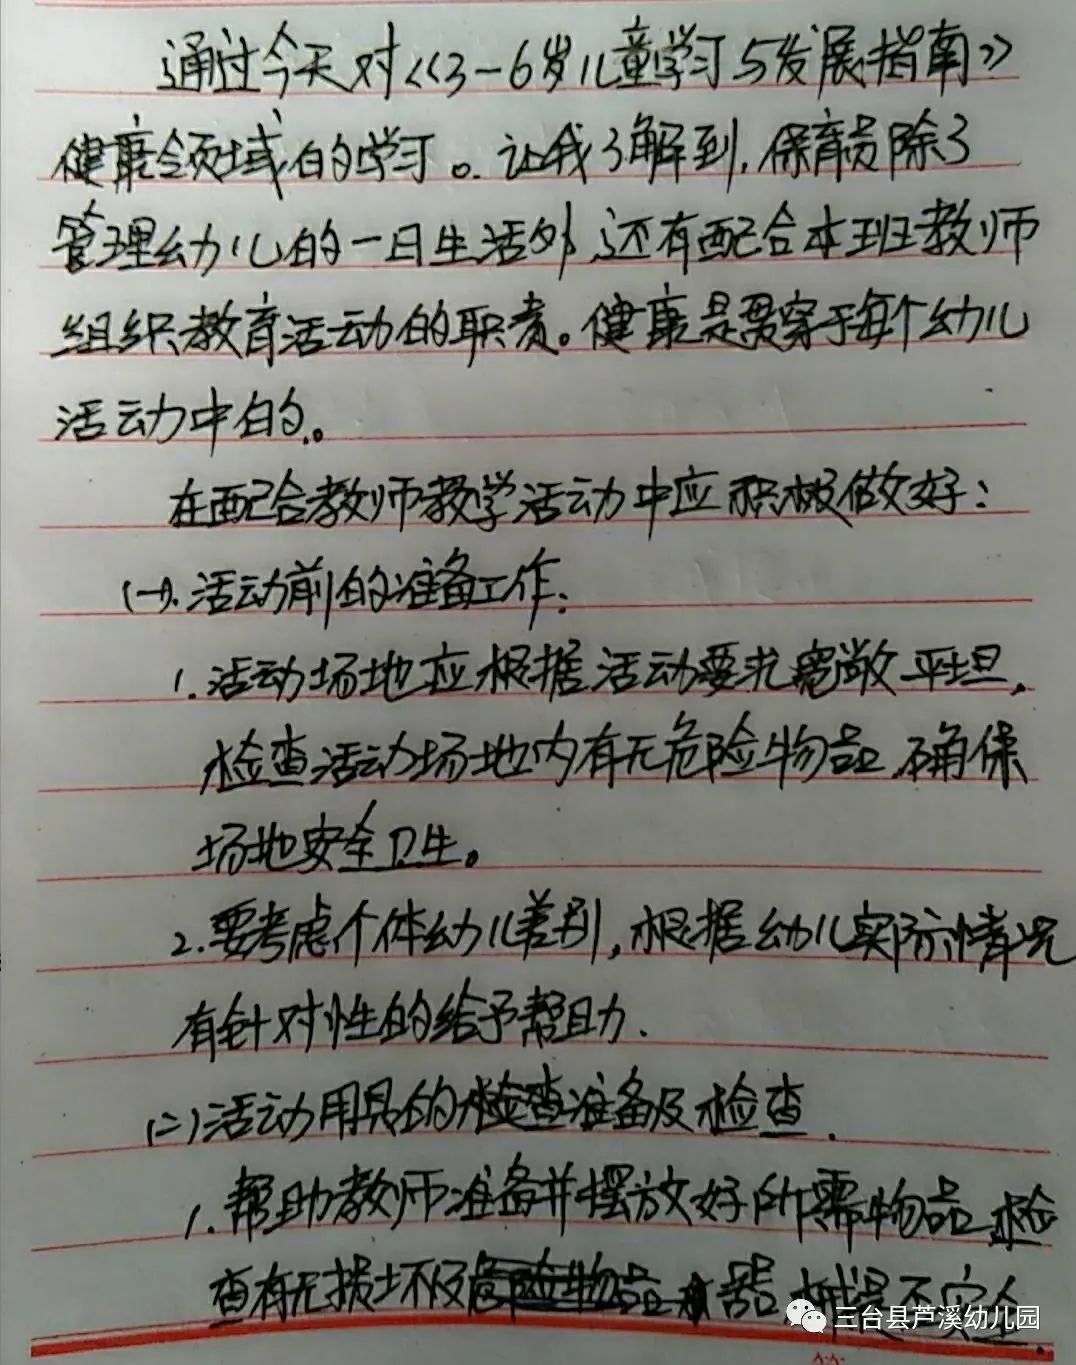 通过今天对《3-6岁儿童学习与发展指南》
健康领域的学习。让我了解到,保育员除了
管理幼儿的一日生活外,还有配合本班教师
组织教育活动的职责。健康是贯穿于每个幼儿
活动中的。
在配合教师教学活动中应积极做好:
(一).活动前的准备工作:
1.活动场地应根据活动要求宽敞平坦,
检查活动场地内有无危险物品,确保
场地安全卫生。
2.要考虑个体幼儿差别,根据幼儿实际情况
有针对性的给予帮助.
(二)活动用具的检查准备及检查.
1.帮助教师准备并摆放好所需物品,检
查有无损坏及危险物品 不安全
三台县芦溪幼儿园